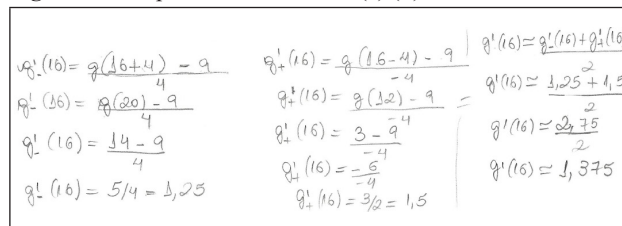 g'₋(16) = g(16+4) - 9 / 4
g'₋(16) = g(20) - 9 / 4
g'₋(16) = 14 - 9 / 4
g'₋(16) = 5/4 = 1,25
g'₊(16) = g(16-4) - 9 / -4
g'₊(16) = g(12) - 9 / -4 =
g'₊(16) = 3 - 9 / -4
g'₊(16) = -6 / -4
g'₊(16) = 3/2 = 1,5
g'(16) ≃ g'₋(16) + g'₊(16) / 2
g'(16) ≃ 1,25 + 1,5 / 2
g'(16) ≃ 2,75 / 2
g'(16) ≃ 1,375